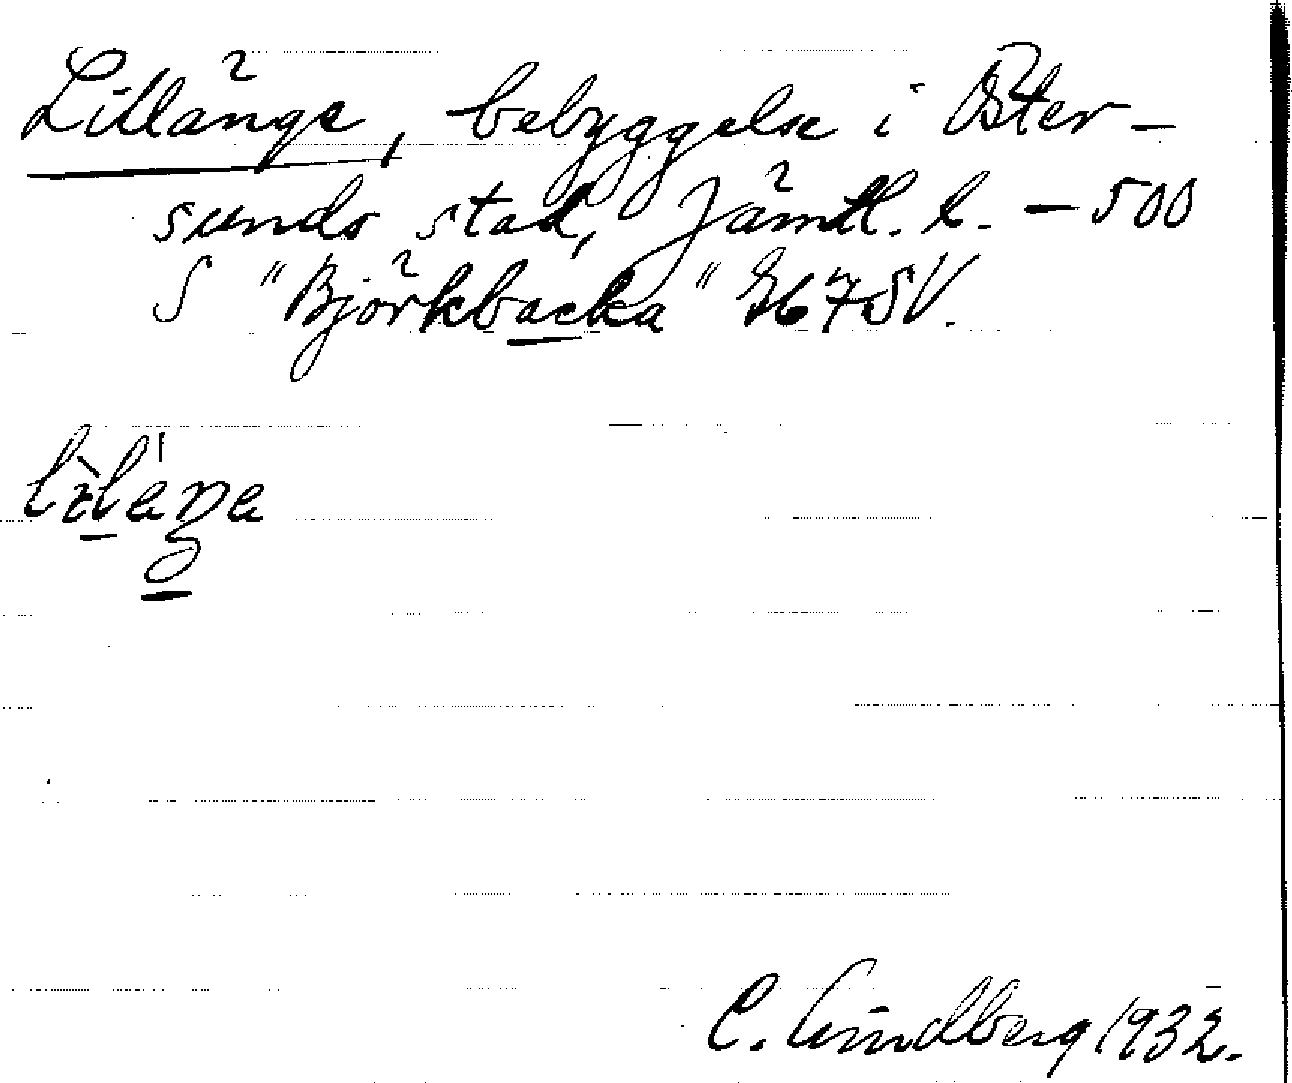 Lillänge, bebyggelse i Öster-
sunds stad, Jämtl. l. - 500
S "Björkbacka" E67SV.
C. Lindberg 1932.